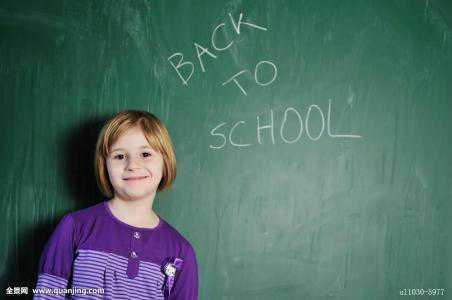 BACK
TO
SCHOOL
全景网 www.quanjing.com
u11030-8977